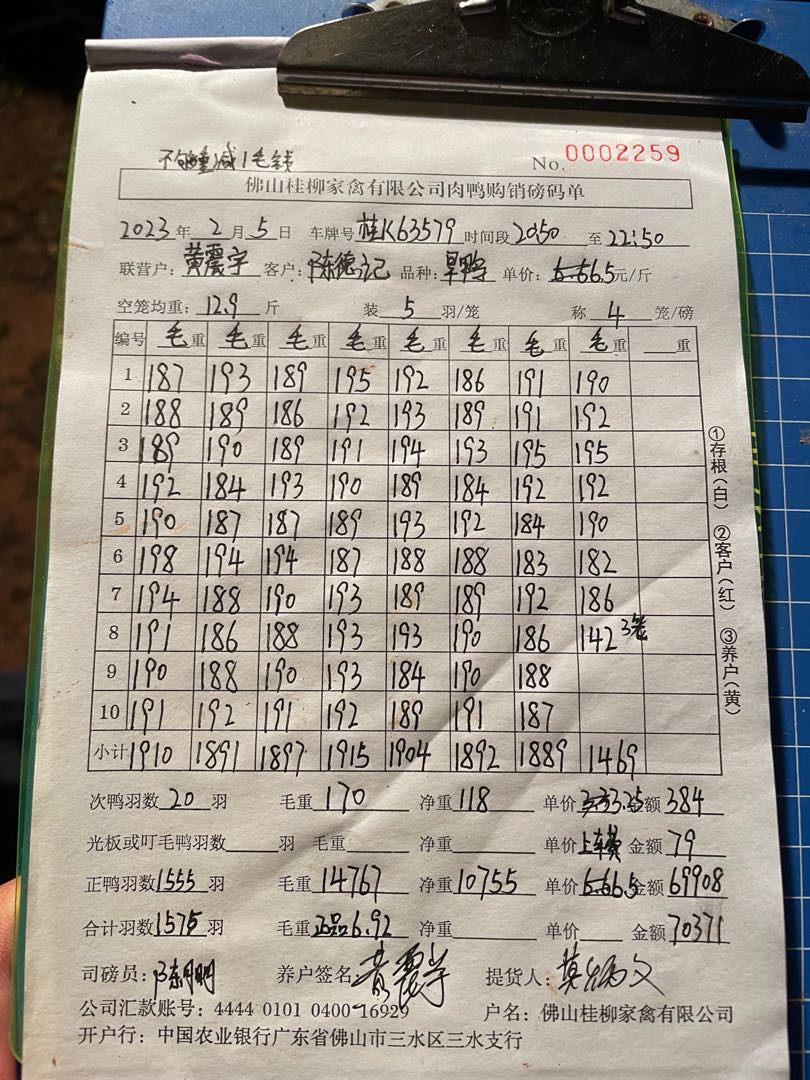 不够重减1毛钱
No. 0002259
佛山桂柳家禽有限公司肉鸭购销磅码单
2023年2月5日 车牌号桂K63579时间段20:50至22:50
联营户:黄震宇 客户:陈德记 品种:旱鸭 单价:6.66.5元/斤
空笼均重:12.9斤 装5羽/笼 称4笼/磅
编号 毛重 毛重 毛重 毛重 毛重 毛重 毛重 毛重 重
1 187 193 189 195 192 186 191 190
2 188 189 186 192 193 189 191 192
3 189 190 189 191 194 193 195 195
4 192 184 193 190 189 184 192 192
5 190 187 187 189 193 192 184 190
6 198 194 194 187 188 188 183 182
7 194 188 190 193 189 189 192 186
8 191 186 188 193 193 190 186 142 3笼
9 190 188 190 193 184 190 188
10 191 192 191 192 189 191 187
小计 1910 1891 1897 1915 1904 1892 1889 1469
①存根(白) ②客户(红) ③养户(黄)
次鸭羽数20羽 毛重170 净重118 单价3.33.25金额384
光板或叮毛鸭羽数 羽 毛重 净重 单价上车费金额79
正鸭羽数1555羽 毛重14767 净重10755 单价6.66.5金额69908
合计羽数1575羽 毛重正品6.92 净重 单价 金额70371
司磅员:陈明 养户签名:黄震宇 提货人:莫炳文
公司汇款账号:4444 0101 0400 16929 户名:佛山桂柳家禽有限公司
开户行:中国农业银行广东省佛山市三水区三水支行